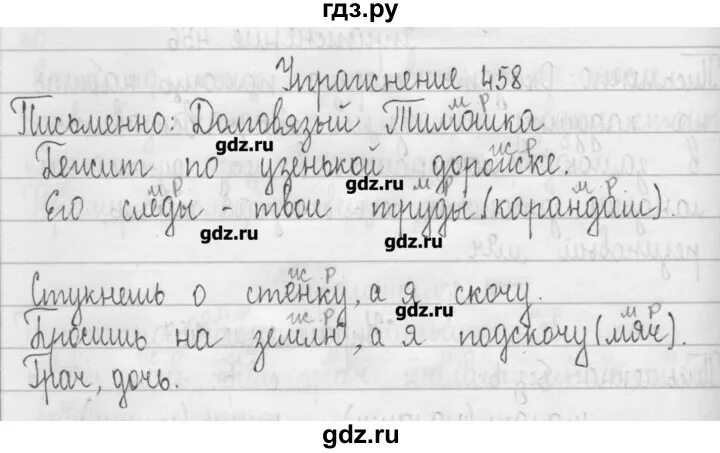 гдз.ру
Упражнение 458
м р
Письменно: Долговязый Тимошка
gdz.ru
ж р
Бежит по узенькой дорожке.
gdz.ru
м р м р м р
Его следы - твои труды (карандаш).
gdz.ru gdz.ru
ж р
Стукнешь о стенку, а я скочу.
ж р gdz.ru м р
Бросишь на землю, а я подскочу (мяч).
gdz.ru
Грач, дочь.
gdz.ru